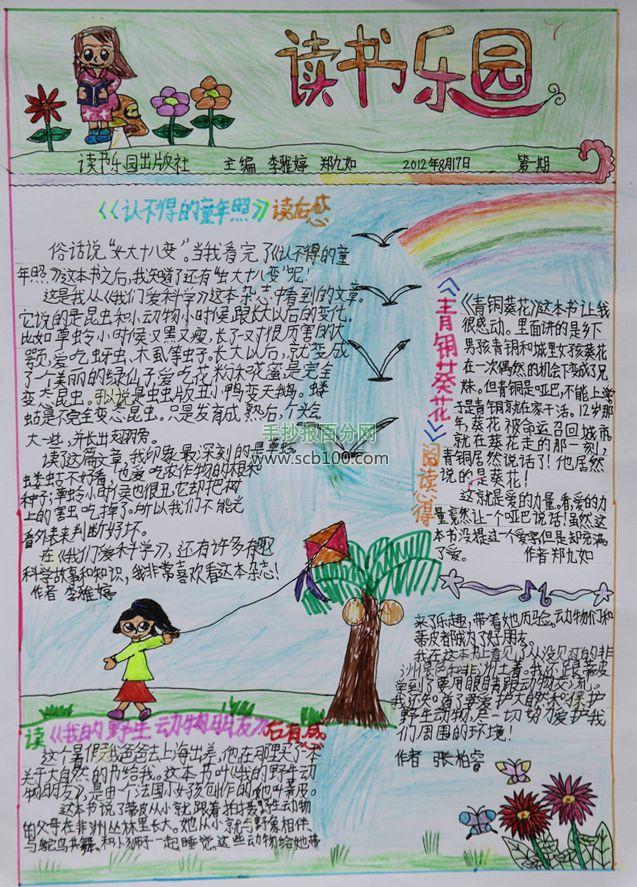 读书乐园
读书乐园出版社 主编 李雅婷 郑九如 2012年8月17日 第一期
《认不得的童年照》读后感
俗话说“女大十八变”。当我看完了《认不得的童
年照》这本书之后,我知道了还有“虫大十八变”呢!
这是我从《我们爱科学》这本杂志中看到的文章。
它说的是昆虫和小动物小时候跟长大以后的变化。
比如草蛉小时候又黑又瘦,长了一对很厉害的大
颚,爱吃蚜虫、木虱等虫子。长大以后,就变成
了一个美丽的绿仙子,爱吃花粉沫呢蛮是完全
变态昆虫。可以说是虫虫版丑小鸭变天鹅。蝼
蛄是不完全变态昆虫。只是发育成熟后,个头会
大一些,并长出翅膀。
读了这篇文章,我印象最深刻的是草蛉
蝼蛄小不好看,也爱吃农作物的根和
种子;草蛉小时候也很丑,它却把树
上的害虫吃掉了。所以我们不能光
看外表来判断好坏。
在《我们爱科学》,还有许多有趣
科学故事和知识,我非常喜欢看这本杂志!
作者 李雅婷
《青铜葵花》阅读心得
《青铜葵花》这本书让我
很感动。里面讲的是乡下
男孩青铜和城里女孩葵花
在一次偶然的机会下变成了兄
妹。但青铜是哑巴,不能上学
于是青铜就在家干活。12岁那
年,葵花被命运召回城市,
就在葵花走的那一刻,
青铜居然说话了!他居然
说的是葵花!
这就是爱的力量。看,爱的力
量竟然让一个哑巴说话!虽然这
本书没提这一个爱字但是却充满
了爱。 作者 郑九如
手抄报百分网
www.scb100.com
读《我的野生动物朋友》后有感
这个暑假我爸爸去上海出差,他在那里买了一本
关于大自然的书给我。这本书叫《我的野生动
物朋友》,是由个法国小女孩创作的,她叫蒂皮。
这本书说了蒂皮从小就跟着拍摄野生动物
的父母在非洲丛林里长大。她从小就与野象相伴、
与鸵鸟共舞、和小狮子一起睡觉。这些动物给她带
来了乐趣,带着她历险。动物们和
蒂皮都成为了好朋友。
我在这本书上看见了从没见过的非
洲
学到了要用眼睛跟动物交谈。
我还知道了要爱护大自然、保护
野生动物,一切努力爱护我
们周围的环境!
作者 张柏睿